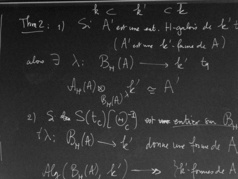 k ⊂ k' ⊂ K
Thm 2: 1) Si A' est une ext. H-galois de k' tq
(A' est une k'-forme de A)
alors ∃ λ: B_H(A) → k' tq
A_H(A) ⊗_{B_H(A)} k' ≃ A'
2) Si S(t_i)[ ] entier sur B_H
∀λ: B_H(A) → k' donne une forme de A
Alg(B_H(A), k') → k'-formes de A